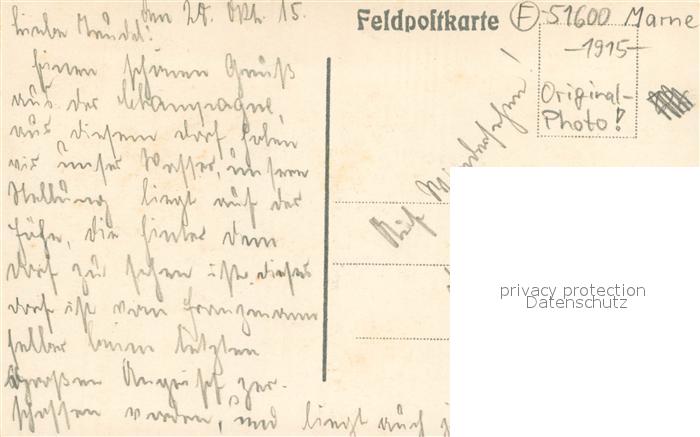 den 28. Okt. 15.
Feldpostkarte
(F) 51600 Marne
-1915-
Original-
Photo!
Einen schönen Gruß
aus der Champagne,
aus diesem Dorf holen
wir unser Wasser, unsere
Stellung liegt auf der
Höhe, die hinter dem
Dorf zu sehen ist. dieses
Dorf ist vom Franzmann
selber beim letzten
großen Angriff zer-
schossen worden, und liegt auch
Auf Wiedersehen!
privacy protection
Datenschutz